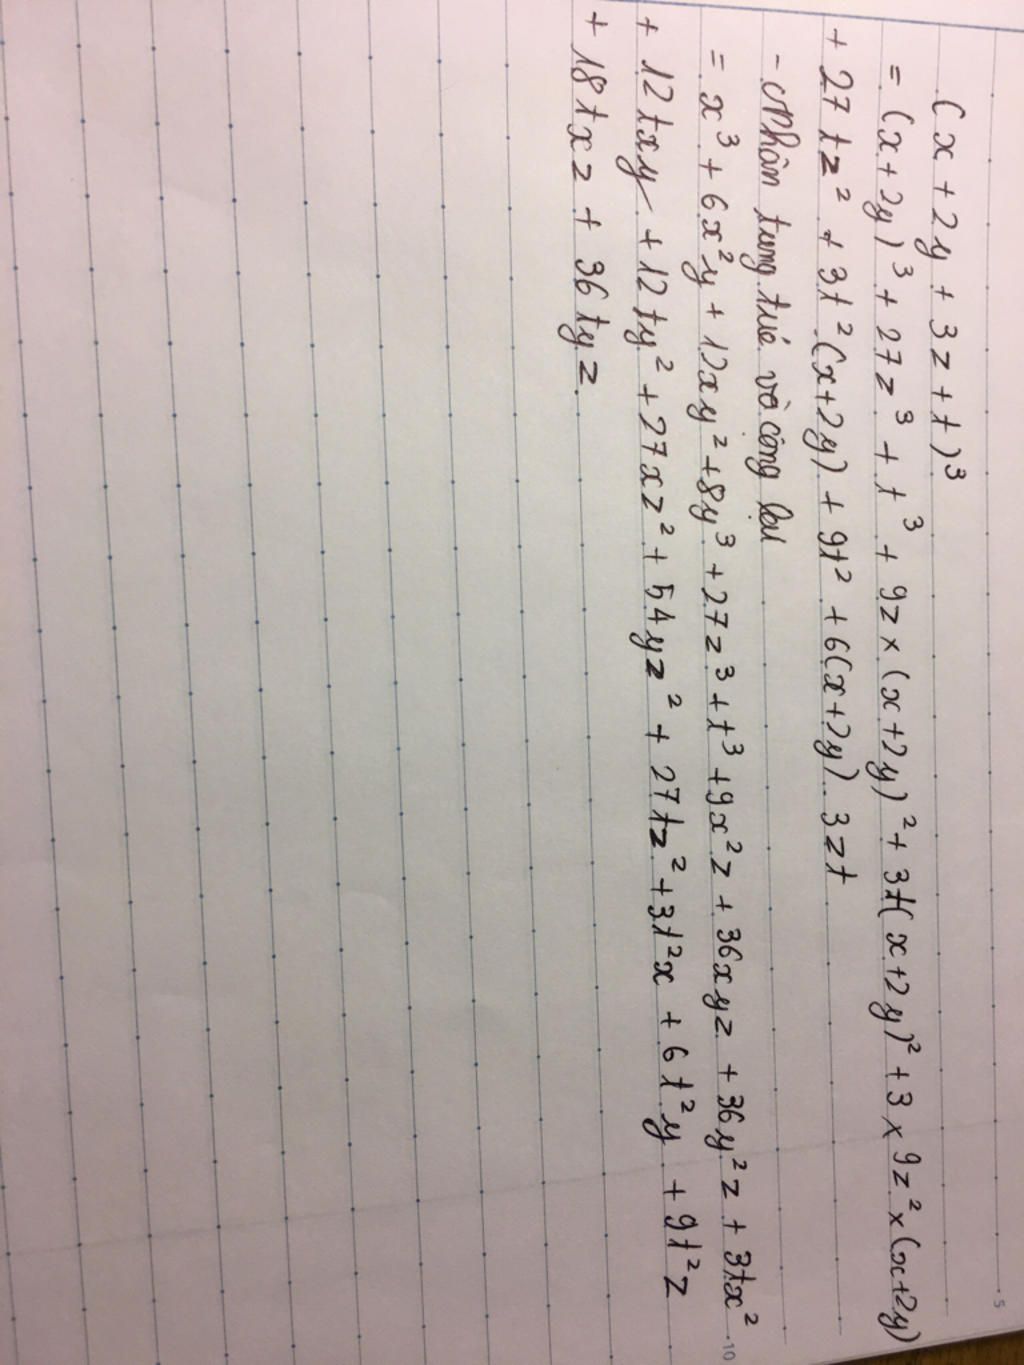 (x + 2y + 3z + t)³
= (x + 2y)³ + 27z³ + t³ + 9z × (x + 2y)² + 3t(x + 2y)² + 3 × 9z² × (x + 2y)
+ 27tz² + 3t²(x + 2y) + 9t² + 6(x + 2y). 3zt
- Nhân tung tué và công lại
= x³ + 6x²y + 12xy² + 8y³ + 27z³ + t³ + 9x²z + 36xyz + 36y²z + 3tx²
+ 12txy + 12ty² + 27xz² + 54yz² + 27tz² + 3t²x + 6t²y + 9t²z
+ 18txz + 36tyz
5
10